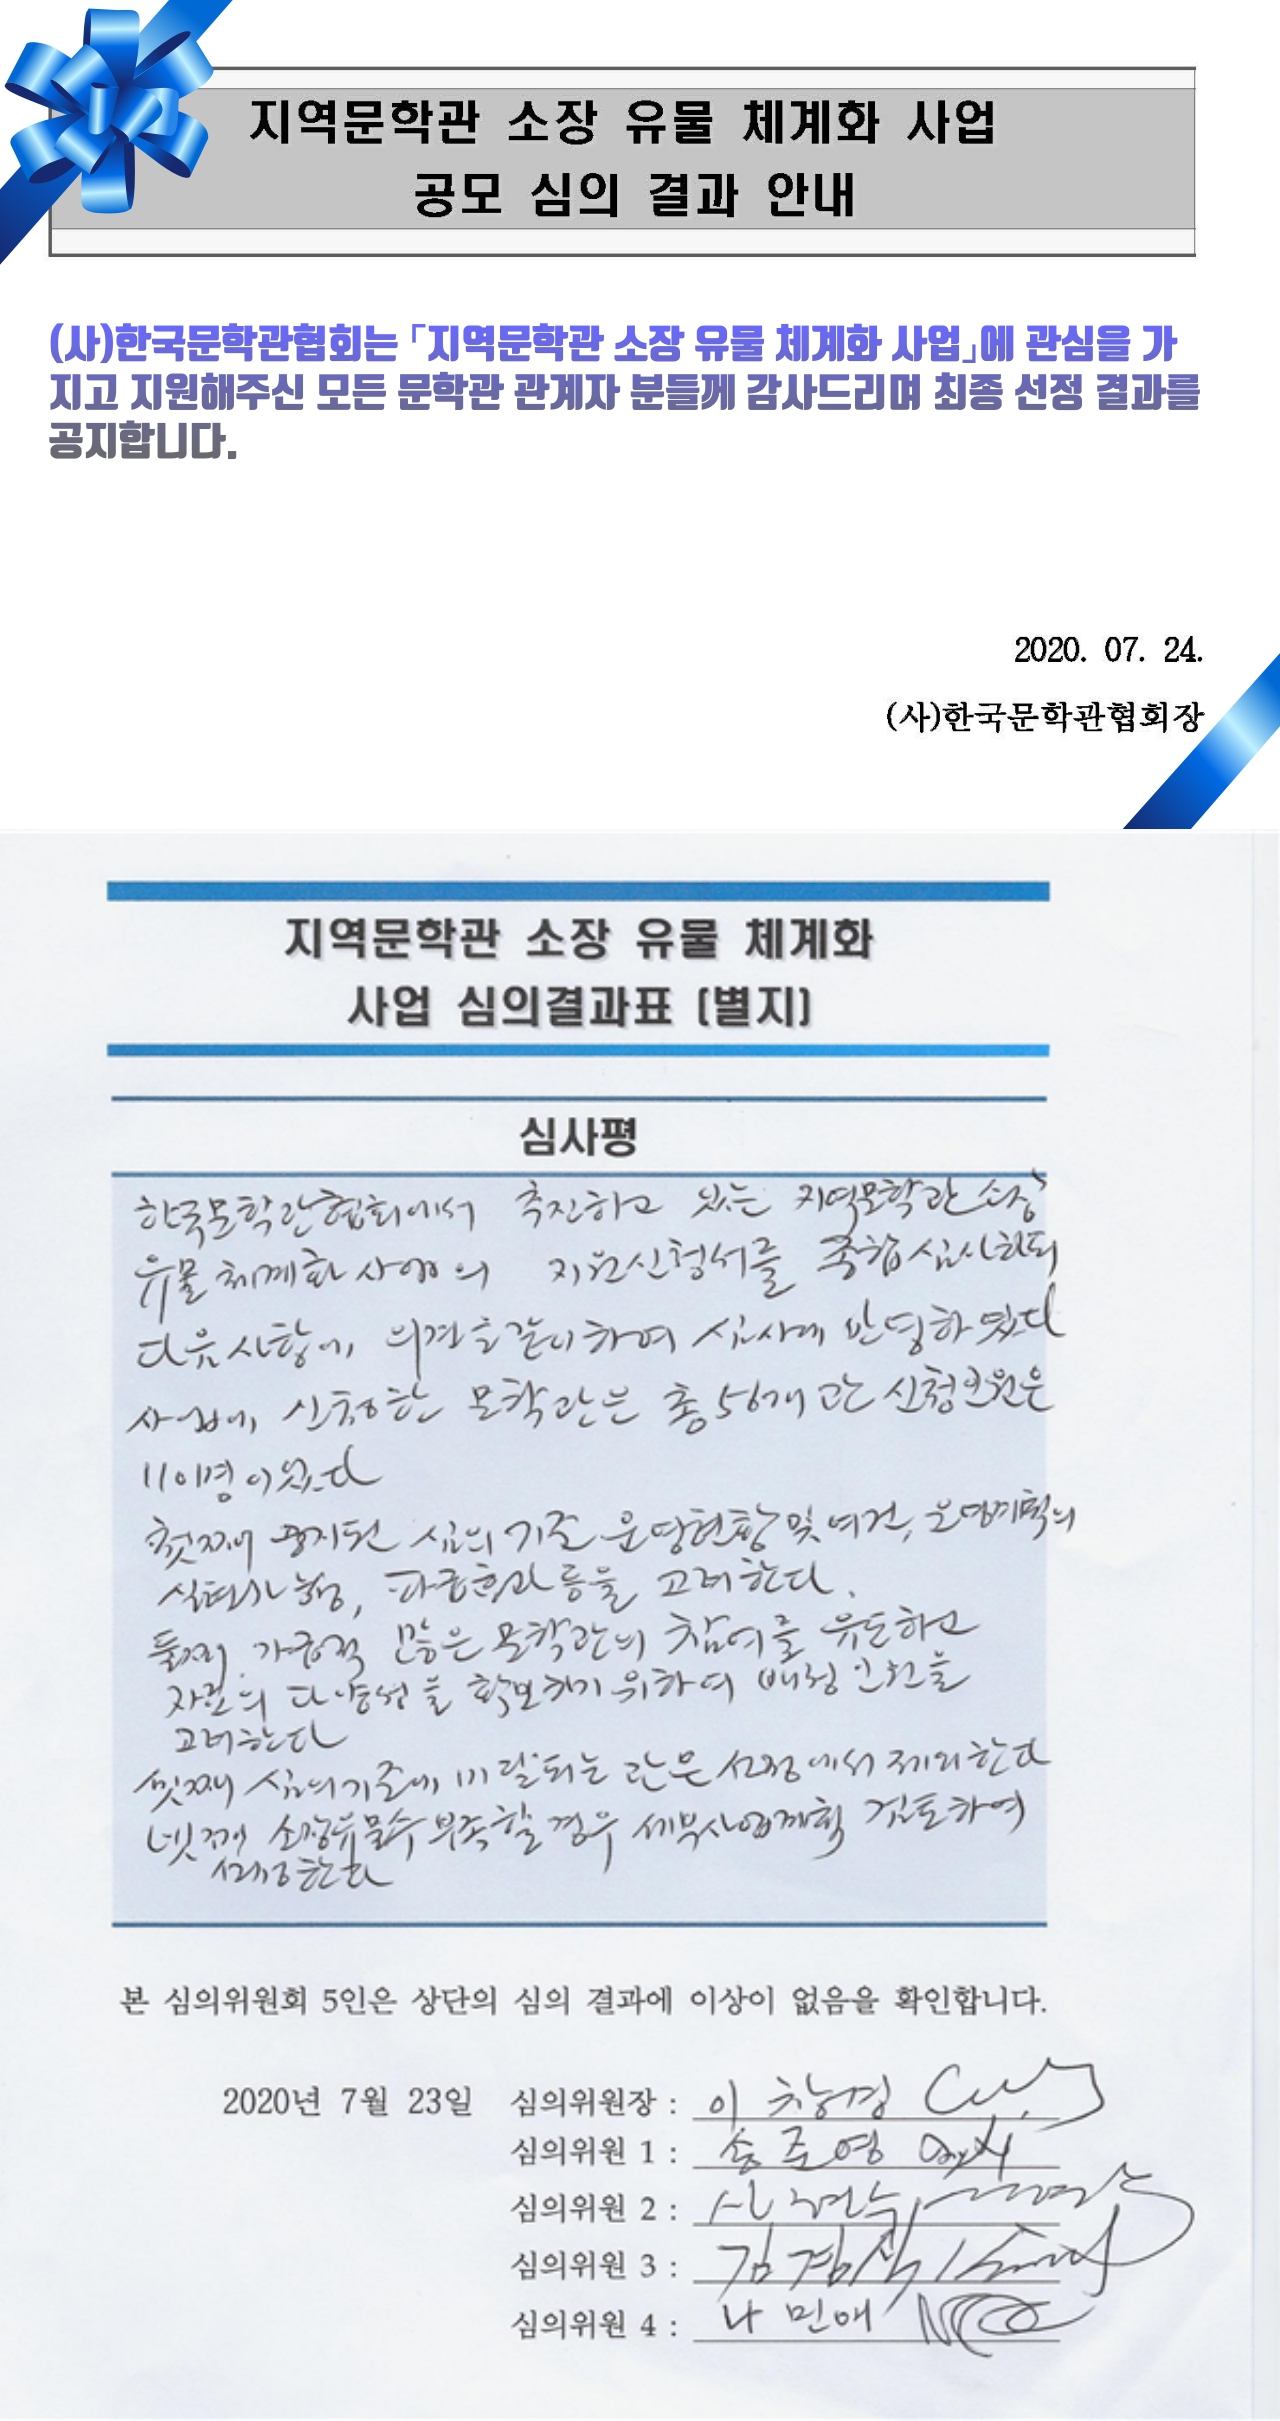 지역문학관 소장 유물 체계화 사업
공모 심의 결과 안내
(사)한국문학관협회는 「지역문학관 소장 유물 체계화 사업」에 관심을 가
지고 지원해주신 모든 문학관 관계자 분들께 감사드리며 최종 선정 결과를
공지합니다.
2020. 07. 24.
(사)한국문학관협회장
지역문학관 소장 유물 체계화
사업 심의결과표 [별지]
심사평
한국문학관협회에서 추진하고 있는 지역문학관 소장
유물 체계화 사업의 지원신청서를 종합심사하되
다음 사항에 의견을 같이하여 심사에 반영하였다
사업에 신청한 문학관은 총 56개 관 신청인원은
110명이었다
첫째 공지된 심의 기준 운영현황 및 여건, 운영계획의
실현가능성, 파급효과 등을 고려한다.
둘째. 가급적 많은 문학관의 참여를 유도하고
자료의 다양성을 확보하기 위하여 배정인원을
고려한다
셋째 심의기준에 미달되는 관은 선정에서 제외한다
넷째 소장유물수 부족할 경우 세부사업계획 검토하여
선정한다
본 심의위원회 5인은 상단의 심의 결과에 이상이 없음을 확인합니다.
2020년 7월 23일 심의위원장 : 이창경
심의위원 1 : 송준영
심의위원 2 :
심의위원 3 : 김경식
심의위원 4 : 나민애